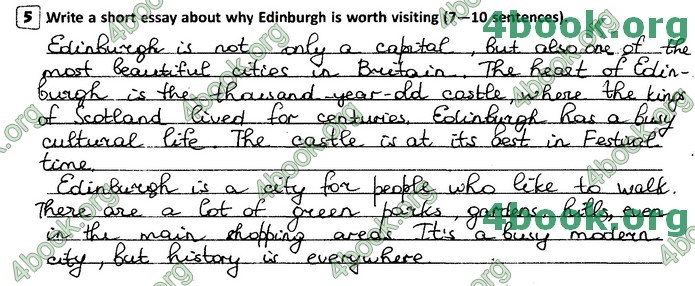 5 Write a short essay about why Edinburgh is worth visiting (7–10 sentences)
4book.org
Edinburgh is not only a capital, but also one of the
most beautiful cities in Britain. The heart of Edin-
burgh is the thousand-year-old castle, where the kings
of Scotland lived for centuries. Edinburgh has a busy
cultural life. The castle is at its best in Festival
time.
Edinburgh is a city for people who like to walk.
There are a lot of green parks, gardens, hills, even
in the main shopping areas. It's a busy modern
city, but history is everywhere.